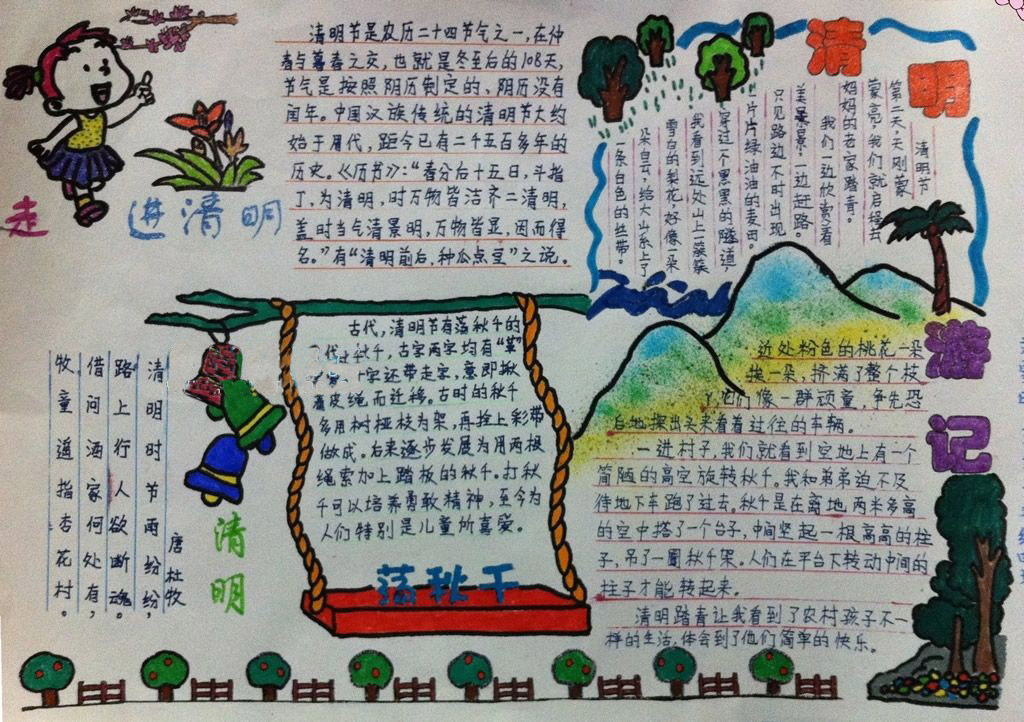 走进清明
清明节是农历二十四节气之一，在仲
春与暮春之交，也就是冬至后的108天，
节气是按照阴历制定的，阴历没有
闰年。中国汉族传统的清明节大约
始于周代，距今已有二千五百多年的
历史。《历节》：“春分后十五日，斗指
丁，为清明，时万物皆洁齐二清明，
盖时当气清景明，万物皆显，因而得
名。”有“清明前后，种瓜点豆”之说。
清明
游记
清明节
第二天，天刚蒙
蒙亮，我们就启程去
妈妈的老家踏青。
我们一边欣赏着
美景，一边赶路。
只见路边不时出现
片片绿油油的麦田。
穿过一个黑黑的隧道，
我看到远处山上一簇簇
雪白的梨花，好像一朵
朵白云，给大山系上了
一条白色的丝带。
近处粉色的桃花一朵
挨一朵，挤满了整个枝
它们像一群顽童，争先恐
后地探出头来看着过往的车辆。
一进村子，我们就看到空地上有一个
简陋的高空旋转秋千。我和弟弟迫不及
待地下车跑了过去。秋千是在离地两米多高
的空中搭了一个台子，中间竖起一根高高的柱
子，吊了一圈秋千架。人们在平台下转动中间的
柱子才能转起来。
清明踏青让我看到了农村孩子不一
样的生活，体会到了他们简单的快乐。
古代，清明节有荡秋千的
秋千，古字两字均有“革”
字还带走字，意即揪
着皮绳而迁移。古时的秋千
多用树桠枝为架，再拴上彩带
做成。后来逐步发展为用两根
绳索加上踏板的秋千。打秋
千可以培养勇敢精神，至今为
人们特别是儿童所喜爱。
荡秋千
清明
唐 杜牧
清明时节雨纷纷，
路上行人欲断魂。
借问酒家何处有，
牧童遥指杏花村。